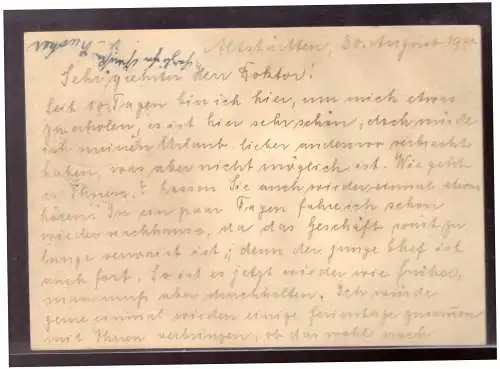 Altstätten, 30. August 19
Sehr geehrter Herr Doktor!
Seit 10 Tagen bin ich hier, um mich etwas
zu erholen, es ist hier sehr schön, doch würde
ich meinen Urlaub lieber anderswo verbracht
haben, was aber nicht möglich ist. Wie geht
es Ihnen? Lassen Sie auch wieder einmal etwas
hören! In ein paar Tagen fahre ich schon
wieder nachhause, da das Geschäft sonst zu
lange verwaist ist, denn der junge Chef ist
auch fort. So ist es jetzt wieder wie früher,
man muß aber durchhalten. Ich würde
gerne einmal wieder einige Ferientage zusammen
mit Ihnen verbringen, ob das wohl noch